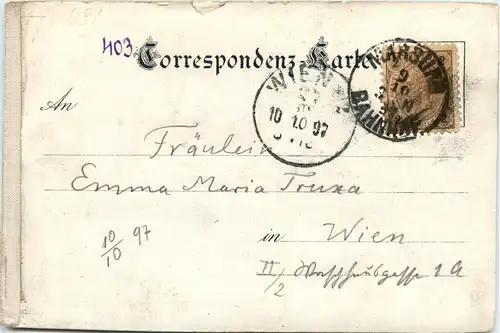 403
Correspondenz-Karte
WIEN
10 10 97
BAHNHOF
An
Fräulein
Emma Maria Truxa
10/10 97
in Wien
II/2 1 A